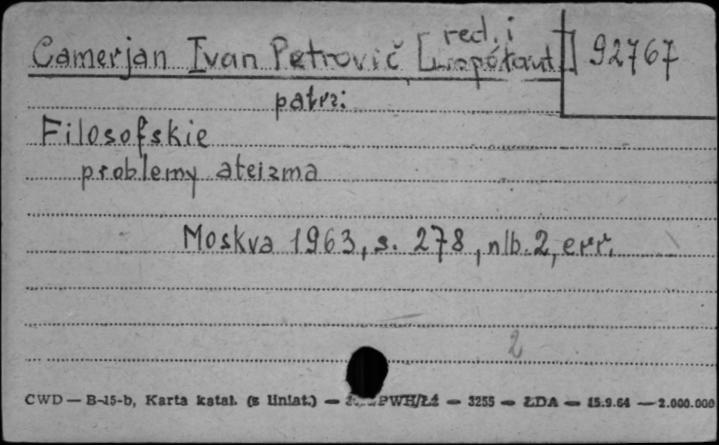 Camerjan Ivan Petrovič [red. i współaut.] 92767
patrz:
Filosofskie
problemy ateizma
Moskva 1963, s. 278, nlb. 2, err.
2
CWD — B-15-b, Karta katal. (z liniat.) — PWH/Łź — 3255 — ŁDA — 15.9.64 — 2.000.000